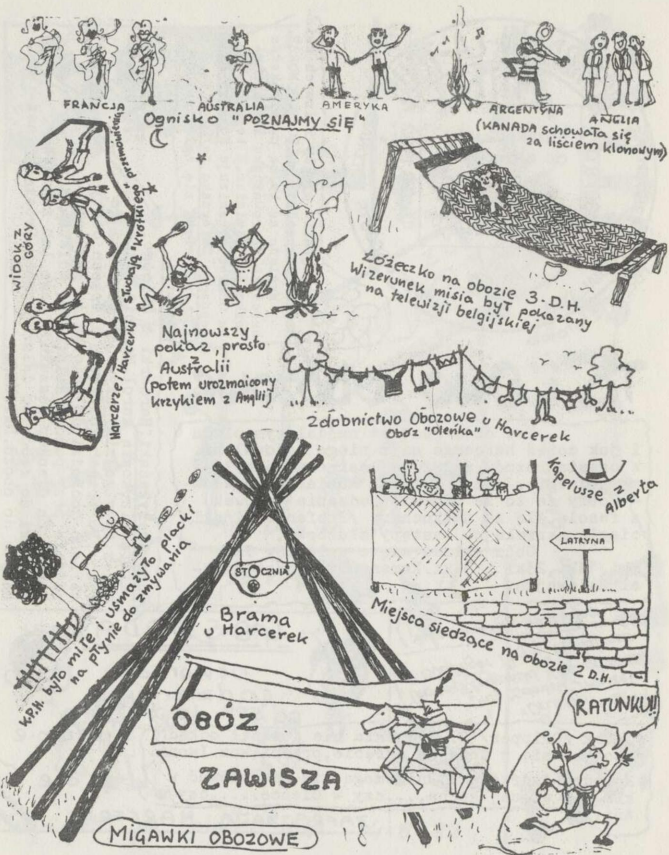 FRANCJA
AUSTRALIA
AMERYKA
ARGENTYNA
ANGLIA
Ognisko "POZNAJMY SIĘ"
(KANADA schowała się
za liściem klonowym)
WIDOK Z
GÓRY
Harcerze i Harcerki słuchają "krótkiego" przemówienia
Najnowszy
pokaz, prosto
z
Australii
(potem urozmaicony
krzykiem z Anglii)
Łóżeczko na obozie 3-D.H.
Wizerunek misia był pokazany
na telewizji belgijskiej
Zdobnictwo Obozowe u Harcerek
Obóz "Oleńka"
Kapelusze z
Alberta
LATRYNA
Miejsca siedzące na obozie 2 D.H.
K.P.H. było miłe i usmażyło placki
na płynie do zmywania
STOCZNIA
Brama
u Harcerek
OBÓZ
ZAWISZA
RATUNKU!!
MIGAWKI OBOZOWE
18